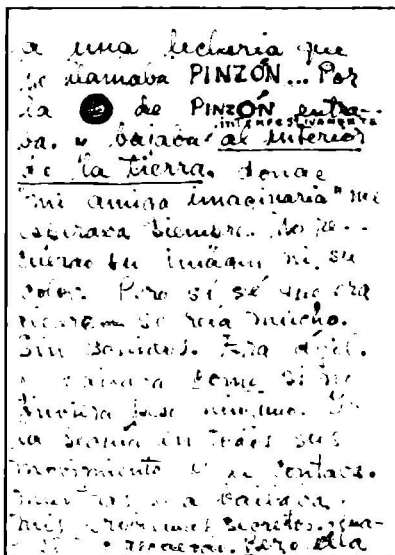 a una lechería que
se llamaba PINZÓN... Por
la O de PINZÓN entra-
ba. y bajaba INTEMPESTIVAMENTE al interior
de la tierra. donde
"mi amiga imaginaria" me
esperaba siempre. No re-
cuerdo su imágen ni su
color. Pero sí sé que era
se reía mucho.
Sin sonidos. Era ágil.
y como si no
tuviera peso ninguno. Yo
la seguía en todos sus
movimientos y le contaba.
mientras ella bailaba.
mis secretos.
Pero ella